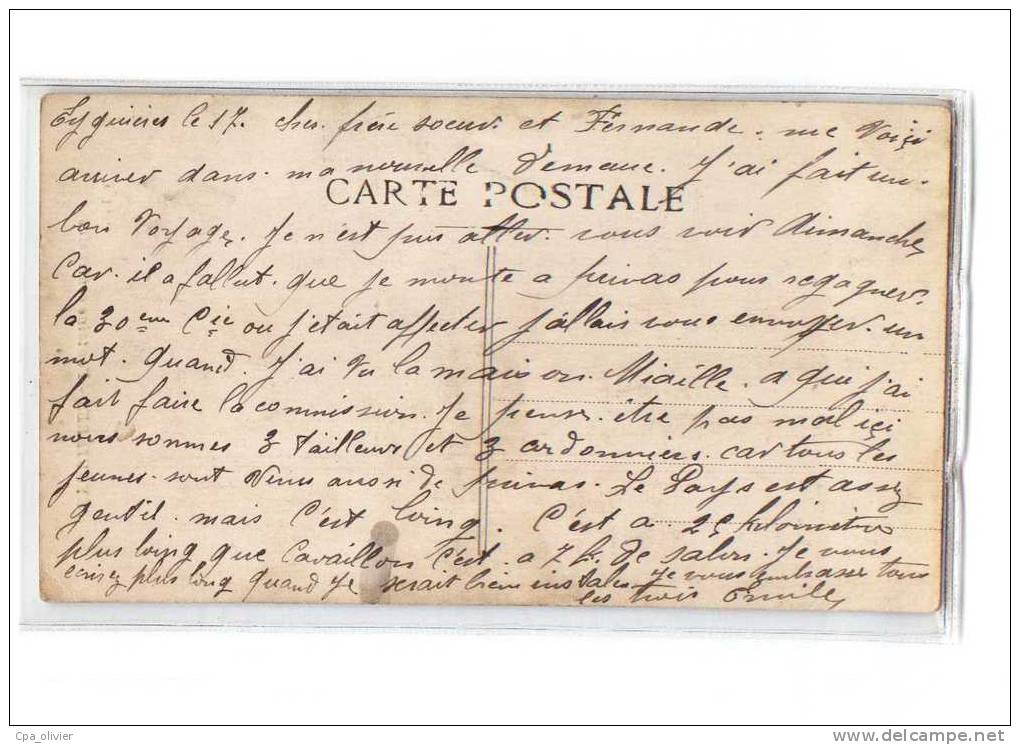 Eyguieres le 17. cher frère soeur et Fernande. me Voiçi
arriver dans ma nouvelle demeure. J'ai fait un
CARTE POSTALE
bon Voyage. Je n'est pas aller vous voir dimanche
Car il a fallut que je monte a privas pour regagner
la 30eme Cie ou j'etait affecter j'allais vous envoyer un
mot. quand J'ai Vu la maison Miaille a qui j'ai
fait faire la commission. Je pense être pas mal içi
nous sommes 3 tailleurs et 3 cordonniers car tous les
jeunes sont Venus aussi de privas. Le Pays est assez
gentil mais C'est loing. C'est a 25 kilometre
plus loing que Cavaillon C'est a 7 k. de salon. Je vous
ecrirez plus long quand Je serait bien instaler Je vous embrasse tous
les trois Emile
Cpa_olivier
www.delcampe.net